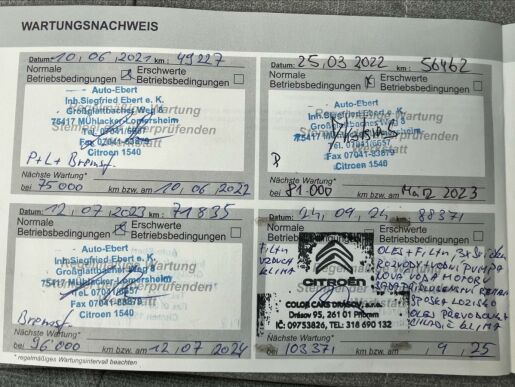 WARTUNGSNACHWEIS
Datum: 10.06.2021 km: 49227
Normale Betriebsbedingungen Erschwerte Betriebsbedingungen
Auto-Ebert
Inh.Siegfried Ebert e. K.
Großglattbacher Weg 8
75417 Mühlacker-Lomersheim
Tel. 07041/6657
Fax 07041-83879
Citroen 1540
P+L+Bremsf.
Nächste Wartung*
bei 75000 km bzw. am 10.06.2022
Datum: 25.03 2022 km: 56462
Normale Betriebsbedingungen Erschwerte Betriebsbedingungen
Auto-Ebert
Inh.Siegfried Ebert e. K.
Großglattbacher Weg 8
75417 Mühlacker-Lomersheim
Fax 07041-83879
Citroen 1540
Nächste Wartung*
bei 81.000 km bzw. am März 2023
Datum: 12.07.2023 km: 71835
Normale Betriebsbedingungen Erschwerte Betriebsbedingungen
Auto-Ebert
Inh.Siegfried Ebert e. K.
Großglattbacher Weg 8
75417 Mühlacker-Lomersheim
Tel. 07041/6657
Fax 07041-83879
Citroen 1540
Bremsf.
Nächste Wartung*
bei 96000 km bzw. am 12.07.2024
24.09.24 88371
Normale Betriebsbedingungen Erschwerte Betriebsbedingungen
FILTR
VZDUCH
KLIMA
CITROËN
COLOR CARS DRÁSOV, s.r.o.
Drásov 95, 261 01 Příbram
IČ: 09753826, TEL: 318 690 132
OLEJ + FILTR,
ROZVODY+VODNI PUMPA
MOTORU
LOZISKO
OLEJ PREVODOVKA
KLIMA
Nächste Wartung*
bei 103371 km bzw. am 9.25
* regelmäßiges Wartungsintervall beachten